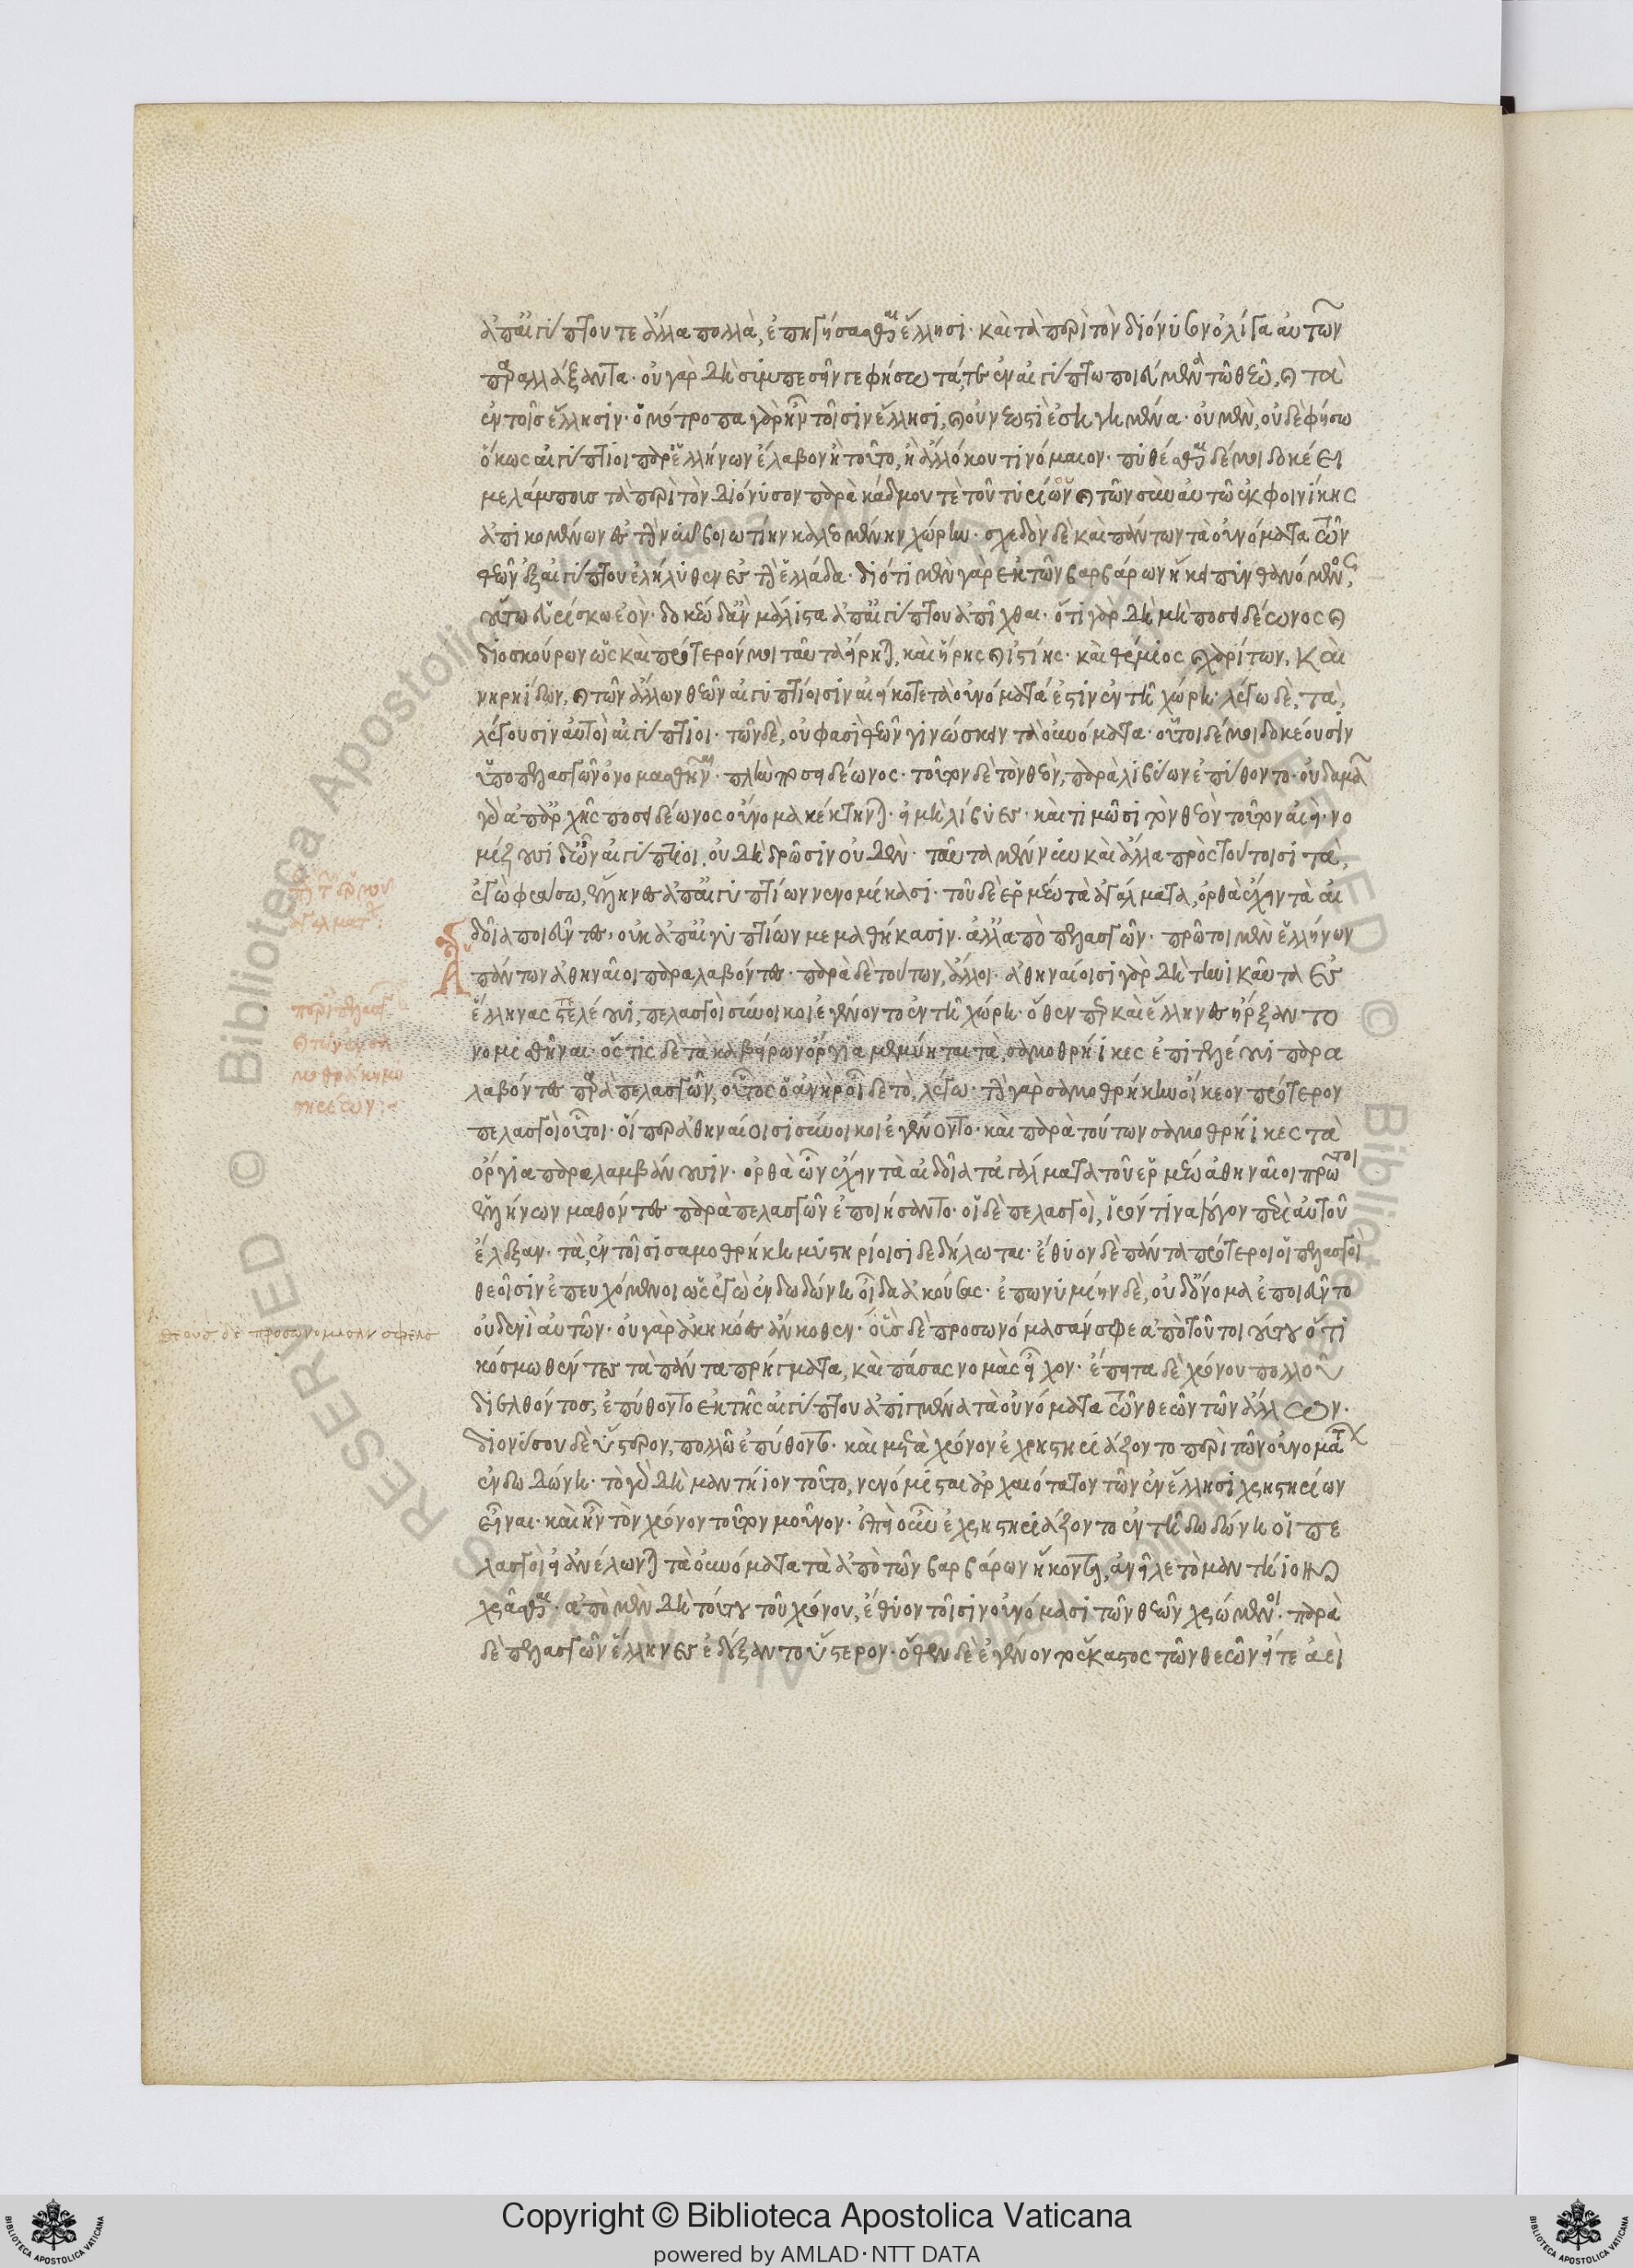 ἀπ' αἰγύπτου τε ἄλλα πολλὰ, ἐσηγήσασθαι ἕλλησι· καὶ τὰ περὶ τὸν διόνυσον ὀλίγα αὐτῶν
παραλλάξαντα· οὐ γὰρ δὴ συμπεσεῖν γε φήσω τά τε ἐν αἰγύπτω ποιεύμενα τῶ θεῶ, καὶ τὰ
ἐν τοῖς ἕλλησιν· ὁμότροπα γὰρ ἦν τοῖσιν ἕλλησι, καὶ οὐ νεωστὶ ἐσηγμένα· οὐ μὲν, οὐδὲ φήσω
ὅκως αἰγύπτιοι παρ' ἑλλήνων ἔλαβον ἢ τοῦτο, ἢ ἄλλό κου τι νόμαιον· πυθέσθαι δέ μοι δοκέει
μελάμπους τὰ περὶ τὸν διόνυσον παρὰ κάδμου τὲ τοῦ τυρίου καὶ τῶν σὺν αὐτῶ ἐκ φοινίκης
ἀπικομένων ἐς τὴν νῦν βοιωτίην καλεομένην χώρην· σχεδὸν δὲ καὶ πάντων τὰ οὐνόματα τῶν
θεῶν ἐξ αἰγύπτου ἐλήλυθεν ἐς τὴν ἑλλάδα· διότι μὲν γὰρ ἐκ τῶν βαρβάρων ἥκει πυνθανόμενος,
οὕτω εὑρίσκω ἐὸν· δοκέω δ' ὦν μάλιστα ἀπ' αἰγύπτου ἀπῖχθαι· ὅτι γὰρ δὴ μὴ ποσειδέωνος καὶ
διοσκούρων ὡς καὶ πρότερόν μοι ταῦτα εἴρηται, καὶ ἥρης καὶ ἱστίης· καὶ θέμιος καὶ χαρίτων, καὶ
νηρηίδων, καὶ τῶν ἄλλων θεῶν αἰγυπτίοισιν αἰεί κοτε τὰ οὐνόματά ἐστιν ἐν τῆ χώρη· λέγω δὲ, τὰ,
λέγουσιν αὐτοὶ αἰγύπτιοι· τῶν δὲ, οὔ φασι θεῶν γινώσκειν τὰ οὐνόματα· οὗτοι δέ μοι δοκέουσιν
ὑπὸ πελασγῶν ὀνομασθῆναι· πλὴν ποσειδέωνος· τοῦτον δὲ τὸν θεὸν, παρὰ λιβύων ἐπύθοντο· οὐδαμοὶ
γὰρ ἀπ' ἀρχῆς ποσειδέωνος οὔνομα κέκτηνται· εἰ μὴ λίβυες· καὶ τιμῶσι τὸν θεὸν τοῦτον αἰεί· νο
μίζουσι δ' ὦν αἰγύπτιοι οὐδ' ἥρωσιν οὐδὲν· ταῦτα μέν νυν καὶ ἄλλα πρὸς τούτοισι τὰ,
ἐγὼ φράσω, ἕλληνες ἀπ' αἰγυπτίων νενομίκασι· τοῦ δὲ ἑρμέω τὰ ἀγάλματα, ὀρθὰ ἔχειν τὰ αἰ
δοῖα ποιεῦντες, οὐκ ἀπ' αἰγυπτίων μεμαθήκασιν. ἀλλ' ἀπὸ πελασγῶν· πρῶτοι μὲν ἑλλήνων
πάντων ἀθηναῖοι παραλαβόντες· παρὰ δὲ τούτων, ἄλλοι· ἀθηναίοισι γὰρ δὴ τηνικαῦτα ἐς
ἕλληνας τελέουσι, πελασγοὶ σύνοικοι ἐγένοντο ἐν τῆ χώρη· ὅθεν περ καὶ ἕλληνες ἤρξαντο
νομισθῆναι· ὅς τις δὲ τὰ καβείρων ὄργια μεμύηται τὰ, σαμοθρήικες ἐπιτελέουσι παρα
λαβόντες παρὰ πελασγῶν, οὗτος ὁ ἀνὴρ οἶδε τὸ, λέγω· τὴν γὰρ σαμοθρήκην οἴκεον πρότερον
πελασγοὶ οὗτοι· οἵ περ ἀθηναίοισι σύνοικοι ἐγένοντο· καὶ παρὰ τούτων σαμοθρήικες τὰ
ὄργια παραλαμβάνουσιν· ὀρθὰ ὦν ἔχειν τὰ αἰδοῖα τἀγάλματα τοῦ ἑρμέω ἀθηναῖοι πρῶτοι
ἑλλήνων μαθόντες παρὰ πελασγῶν ἐποιήσαντο· οἱ δὲ πελασγοὶ, ἱρόν τινα λόγον περὶ αὐτοῦ
ἔλεξαν· τὰ, ἐν τοῖσι σαμοθρήκη μυστηρίοισι δεδήλωται· ἔθυον δὲ πάντα πρότεροι οἱ πελασγοὶ
θεοῖσιν ἐπευχόμενοι ὡς ἐγὼ ἐν δωδώνη οἶδα ἀκούσας· ἐπωνυμίην δὲ, οὐδ' οὔνομα ἐποιεῦντο
οὐδενὶ αὐτῶν· οὐ γὰρ ἀκηκόεσάν κοθεν· οὓς δὲ προσωνόμασάν σφεα ἀπὸ τοῦ τοιούτου ὅτι
κόσμω θέντες τὰ πάντα πρήγματα, καὶ πάσας νομὰς εἶχον· ἔπειτα δὲ χρόνου πολλοῦ
διελθόντος, ἐπύθοντο ἐκ τῆς αἰγύπτου ἀπιγμένα τὰ οὐνόματα τῶν θεῶν τῶν ἄλλων·
διονύσου δὲ ὕστερον, πολλῶ ἐπύθοντο· καὶ μετὰ χρόνον ἐχρηστηριάζοντο περὶ τῶν οὐνομάτων
ἐν δωδώνη· τὸ γὰρ δὴ μαντήιον τοῦτο, νενόμισται ἀρχαιότατον τῶν ἐν ἕλλησι χρηστηρίων
εἶναι· καὶ ἦν τὸν χρόνον τοῦτον μοῦνον· ἐπεὶ ὦν ἐχρηστηριάζοντο ἐν τῆ δωδώνη οἱ πε
λασγοὶ εἰ ἀνέλωνται τὰ οὐνόματα τὰ ἀπὸ τῶν βαρβάρων ἥκοντα, ἀνεῖλε τὸ μαντήιον
χρᾶσθαι· ἀπὸ μὲν δὴ τούτου τοῦ χρόνου, ἔθυον τοῖσιν οὐνόμασι τῶν θεῶν χρεώμενοι· παρὰ
δὲ πελασγῶν ἕλληνες ἐδέξαντο ὕστερον· ὅθεν δὲ ἐγένοντο ἕκαστος τῶν θεῶν εἴτε ἀεὶ
Copyright © Biblioteca Apostolica Vaticana
powered by AMLAD·NTT DATA